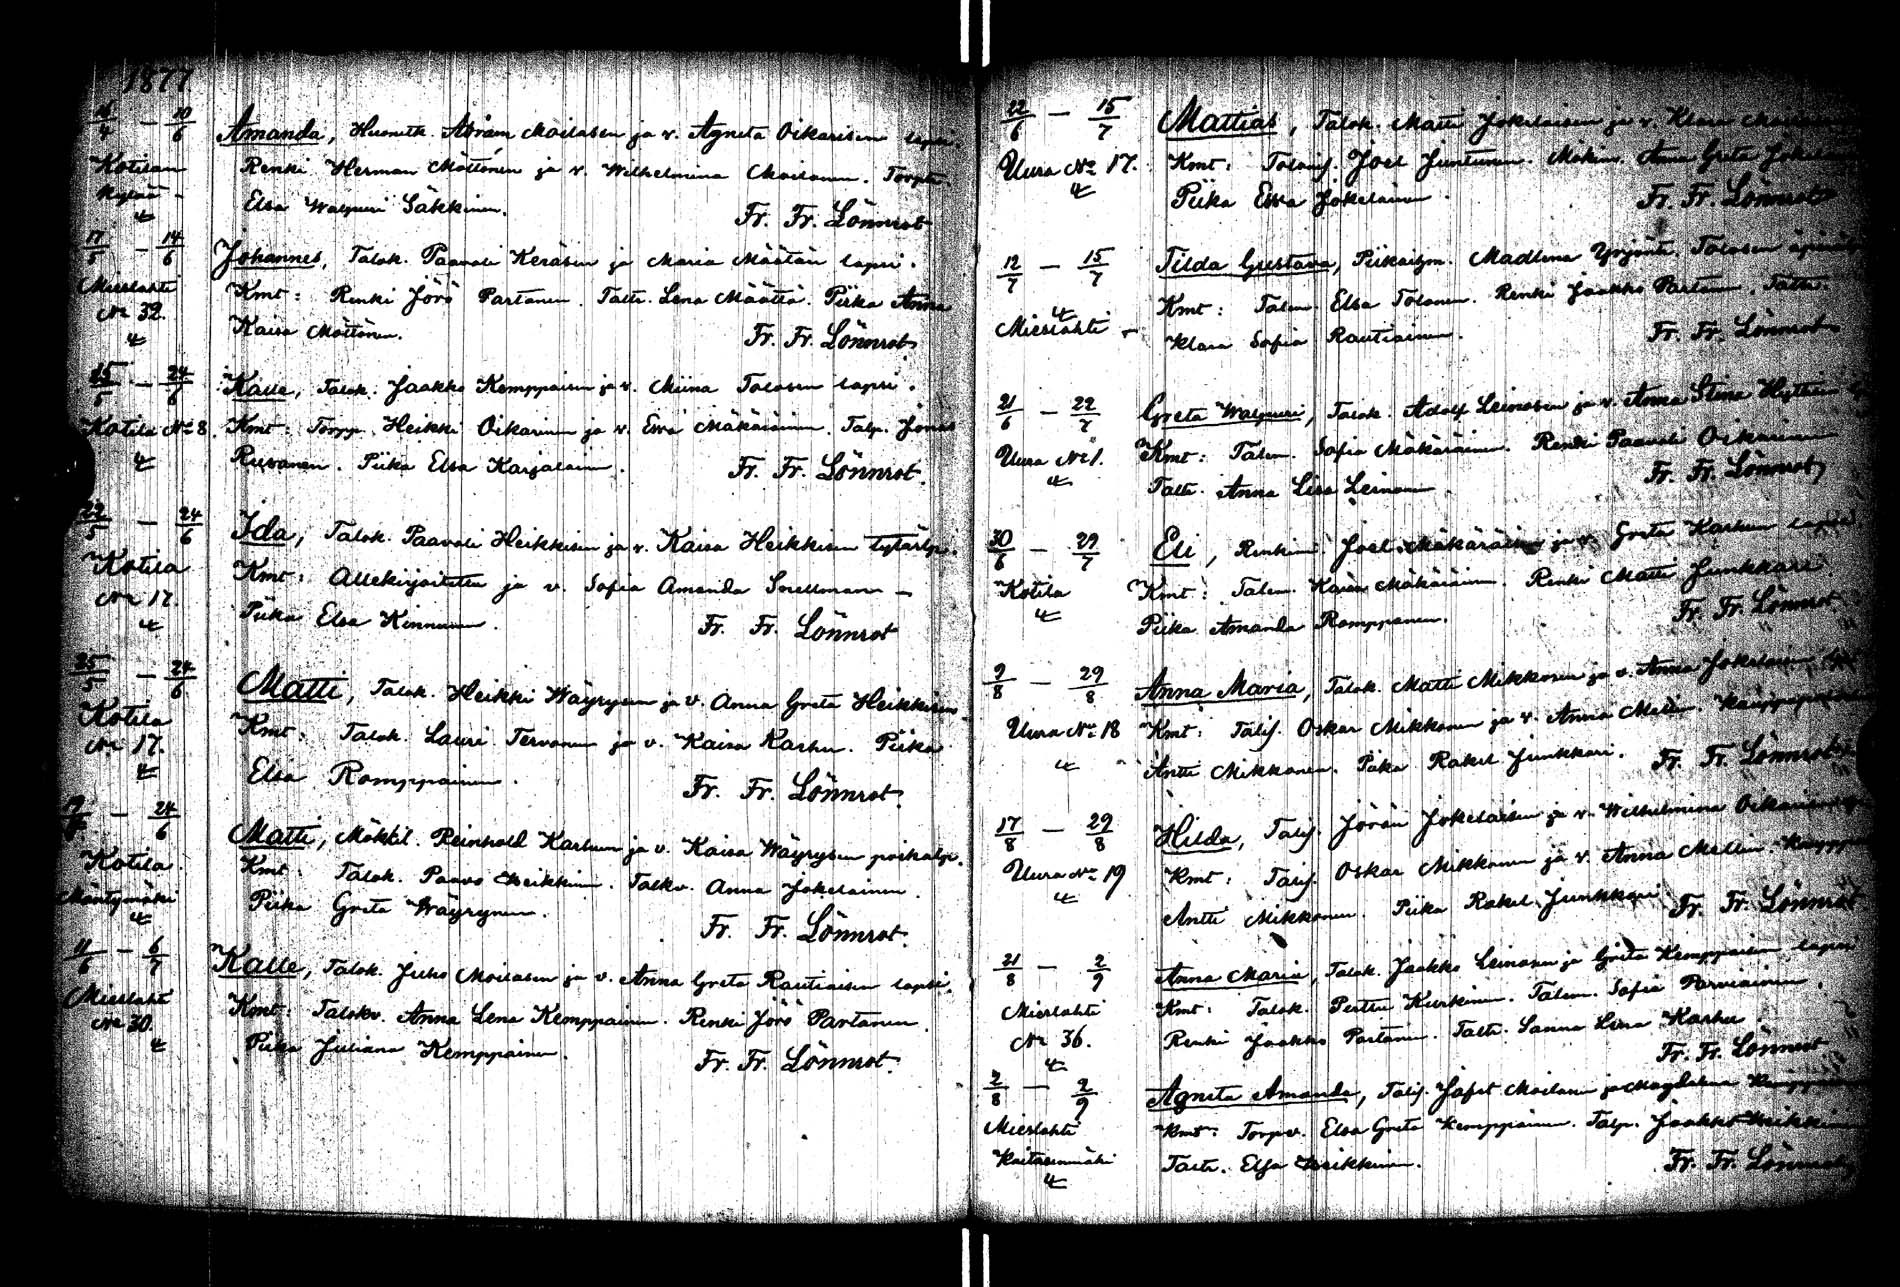 1877
16/4 — 10/6 Amanda, Huonetk. Abram Moilasen ja v. Agneta Oikarisen lapsi.
Kotilan Renki Herman Möttönen ja v. Wilhelmina Moilanen. Torpt.
Kylää - Elsa Walpuri Säkkinen. Fr. Fr. Lönnrot
4
17/5 — 14/6 Johannes, Talok. Paavali Keräsen ja Maria Määtän lapsi.
Mieslahti Kmt: Renki Jörö Partanen. Taltt. Lena Määttä. Piika Anna
№ 32. Kaisa Möttönen. Fr. Fr. Lönnrot
4
15/5 — 24/6 Kalle, Talok. Jaakko Kemppaisen ja v. Miina Tolosen lapsi.
Kotila № 8. Kmt: Torpp. Heikki Oikarinen ja v. Ewa Mäkäräinen. Talp. Jonas
4 Rusanen. Piika Elsa Karjalainen. Fr. Fr. Lönnrot.
22/5 — 24/6 Ida, Talok. Paavali Heikkisen ja v. Kaisa Heikkisen tytärlps.
Kotila Kmt: Allekirjoitettu ja v. Sofia Amanda Snellman —
№ 17. Piika Elsa Kinnunen. Fr. Fr. Lönnrot
4
25/5 — 24/6 Matti, Talok. Heikki Wäyrysen ja v. Anna Greta Heikkisen
Kotila Kmt: Talok. Lauri Tervonen ja v. Kaisa Karhu. Piika
№ 17. Elsa Romppainen. Fr. Fr. Lönnrot.
4
— 24/6 Matti, Mökkil. Reinhold Karhun ja v. Kaisa Wäyrysen poikalps.
Kotila Kmt: Talok. Paavo Heikkinen. Talkv. Anna Jokelainen
Mäntymäki Piika Greta Wäyrynen. Fr. Fr. Lönnrot.
4
11/6 — 6/7 Kalle, Talok. Juho Moilasen ja v. Anna Greta Rautiaisen lapsi.
Mieslahti Kmt: Talokv. Anna Lena Kemppainen. Renki Jörö Partanen.
№ 30. Piika Juliana Kemppainen. Fr. Fr. Lönnrot.
4
22/6 — 15/7 Mattias, Talok. Matti Jokelaisen ja v. Klara
Uura № 17. Kmt: Talonif. Joel Juntunen. Mökin. Anna Greta Jokelainen
4 Piika Ewa Jokelainen. Fr. Fr. Lönnrot
12/7 — 15/7 Tilda Gustava, Piikaihm. Madlena Yrjönt. Tolosen
4 Kmt: Talem. Elsa Tolonen. Renki Jaakko Partanen. Taltt.
Mieslahti — Klara Sofia Rautiainen. Fr. Fr. Lönnrot
21/6 — 22/7 Greta Walpuri, Talok. Adolf Leinosen ja v. Anna Stina
Uura № 1. Kmt: Talem. Sofia Mäkäräinen. Renki Paavali Oikarinen
4 Taltt. Anna Lisa Leinonen. Fr. Fr. Lönnrot
30/6 — 29/7 Eli, Renkim. Joel Mäkäräisen ja v. Greta Karhun lapsi.
Kotila Kmt: Talem. Kaisa Mäkäräinen. Renki Matti Junkkari.
4 Piika Amanda Romppanen. Fr. Fr. Lönnrot.
9/8 — 29/8 Anna Maria, Talok. Matti Mikkosen ja v. Anna Jokelaisen
Uura № 18 Kmt: Talif. Oskar Mikkonen ja v. Anna Mellin.
4 Antti Mikkonen. Piika Rakel Junkkari. Fr. Fr. Lönnrot
17/8 — 29/8 Hilda, Talif. Jörän Jokelaisen ja v. Wilhelmina Oikarisen
Uura № 19 Kmt: Talif. Oskar Mikkonen ja v. Anna Mellin
4 Antti Mikkonen. Piika Rakel Junkkari Fr. Fr. Lönnrot
21/8 — 2/9 Anna Maria, Talok. Jaakko Leinosen ja Greta Kemppaisen lapsi
Mieslahti Kmt: Talok. Perttu Kurkinen. Talem. Sofia Parviainen.
№ 36. Renki Jaakko Partanen. Taltt. Sanna Liisa Karhu.
4 Fr. Fr. Lönnrot
2/8 — 2/9 Agneta Amanda, Talif. Jafet Moilasen ja Magdalena
Mieslahti Kmt: Torpv. Elsa Greta Kemppainen. Talp. Jaakko Heikkinen
Taltt. Elsa Heikkinen. Fr. Fr. Lönnrot
4